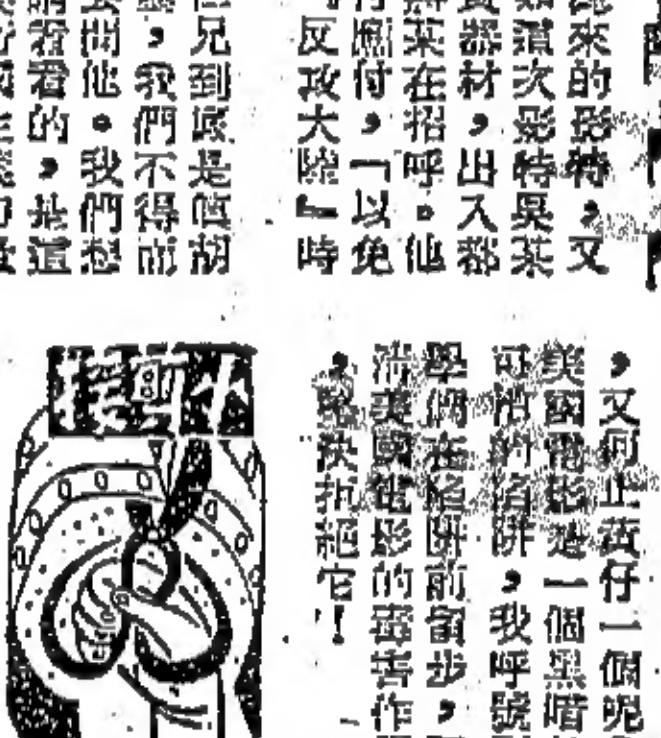 來的影特,又
次影特吳某
器材,出入都
某在招呼。他
應付,「以免
反攻大陸」時
兄到底是值胡
,我們不得而
問他。我們想
看看的,是這
,又何止黃仔一個呢
美國電影是一個黑暗
可怕的陷阱,我呼號
學們在陷阱前留步,
清美國電影的毒害作
,堅決拒絕它!
小剪接